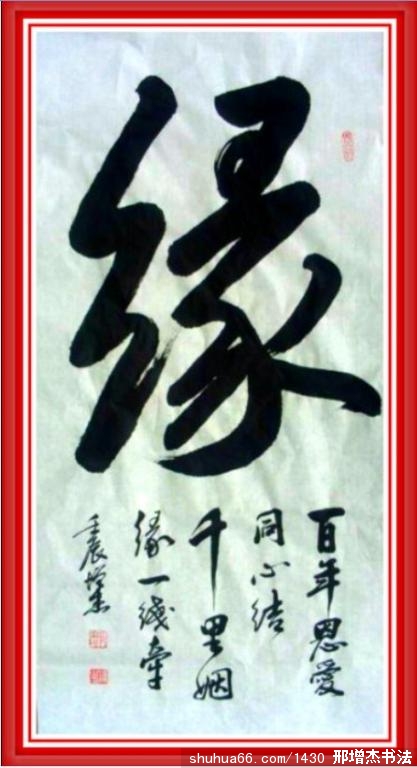 缘
百年恩愛
同心结
千里姻
缘一线牵
壬辰增杰
shuhua66.com/1430 邢增杰书法